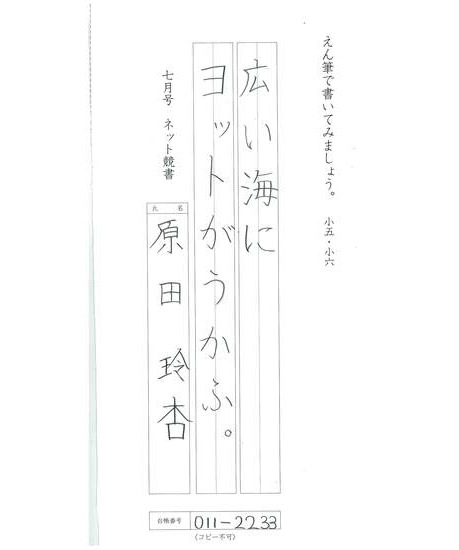 えん筆で書いてみましょう。 小五・小六
広い海に
ヨットがうかぶ。
七月号 ネット競書
氏名
原田玲杏
台帳番号 011-2233
(コピー不可)